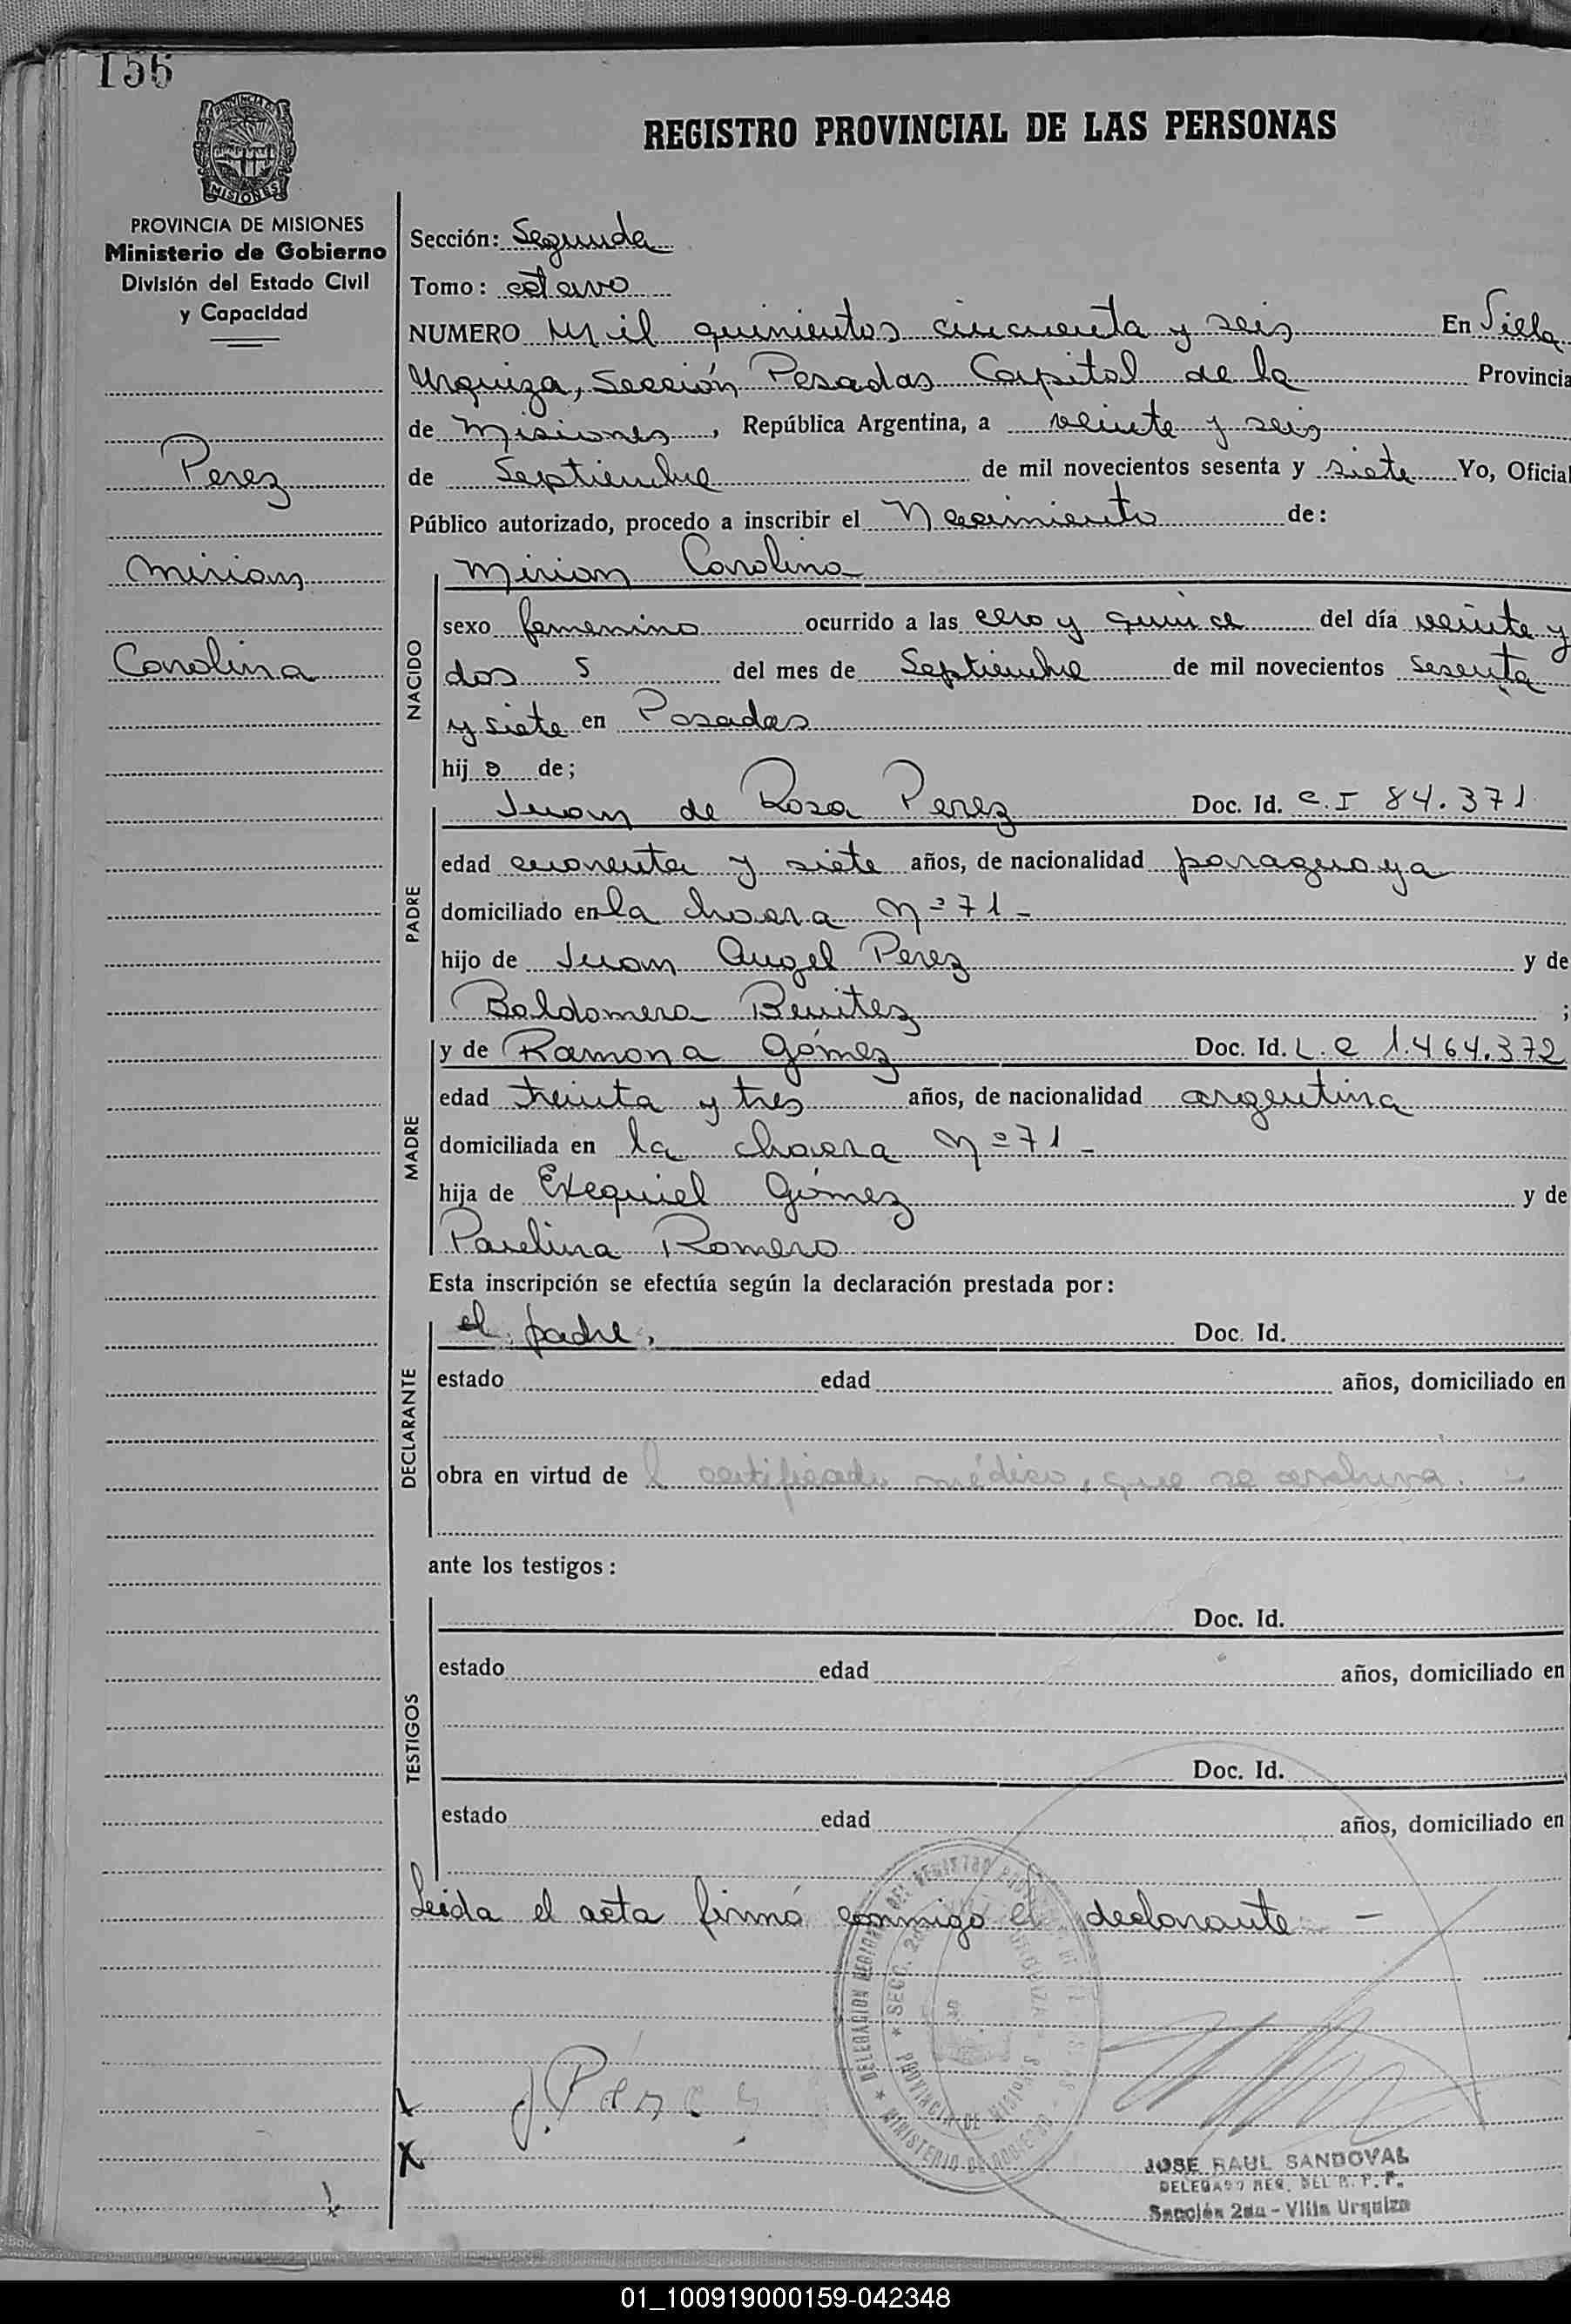 156
PROVINCIA DE MISIONES
MISIONES
REGISTRO PROVINCIAL DE LAS PERSONAS
PROVINCIA DE MISIONES
Ministerio de Gobierno
División del Estado Civil
y Capacidad
Perez
Mirian
Carolina
Sección: Segunda
Tomo: octavo
NUMERO Mil quinientos cincuenta y seis En Villa
Urquiza, Sección Posadas Capital de la Provincia
de Misiones, República Argentina, a veinte y seis
de Septiembre de mil novecientos sesenta y siete Yo, Oficial
Público autorizado, procedo a inscribir el Nacimiento de:
NACIDO
Mirian Carolina
sexo femenino ocurrido a las cero y quince del día veinte y
dos del mes de Septiembre de mil novecientos sesenta
y siete en Posadas
hij a de;
PADRE
Juan de Rosa Perez Doc. Id. C.I 84.371
edad cuarenta y siete años, de nacionalidad paraguaya
domiciliado en la chacra Nº 71-
hijo de Juan Angel Perez y de
Baldomera Benitez ;
MADRE
y de Ramona Gómez Doc. Id. L.C 1.464.372
edad treinta y tres años, de nacionalidad argentina
domiciliada en la chacra Nº 71-
hija de Exequiel Gómez y de
Paulina Romero
Esta inscripción se efectúa según la declaración prestada por:
DECLARANTE
el padre, Doc. Id.
estado edad años, domiciliado en
obra en virtud de l certificado médico, que se archiva. -
ante los testigos:
TESTIGOS
Doc. Id.
estado edad años, domiciliado en
Doc. Id.
estado edad años, domiciliado en
Leida el acta firmó conmigo el declarante -
J. Pérez
JOSE RAUL SANDOVAL
DELEGADO REG. DEL R. P. P.
Sección 2da - Villa Urquiza
01_100919000159-042348